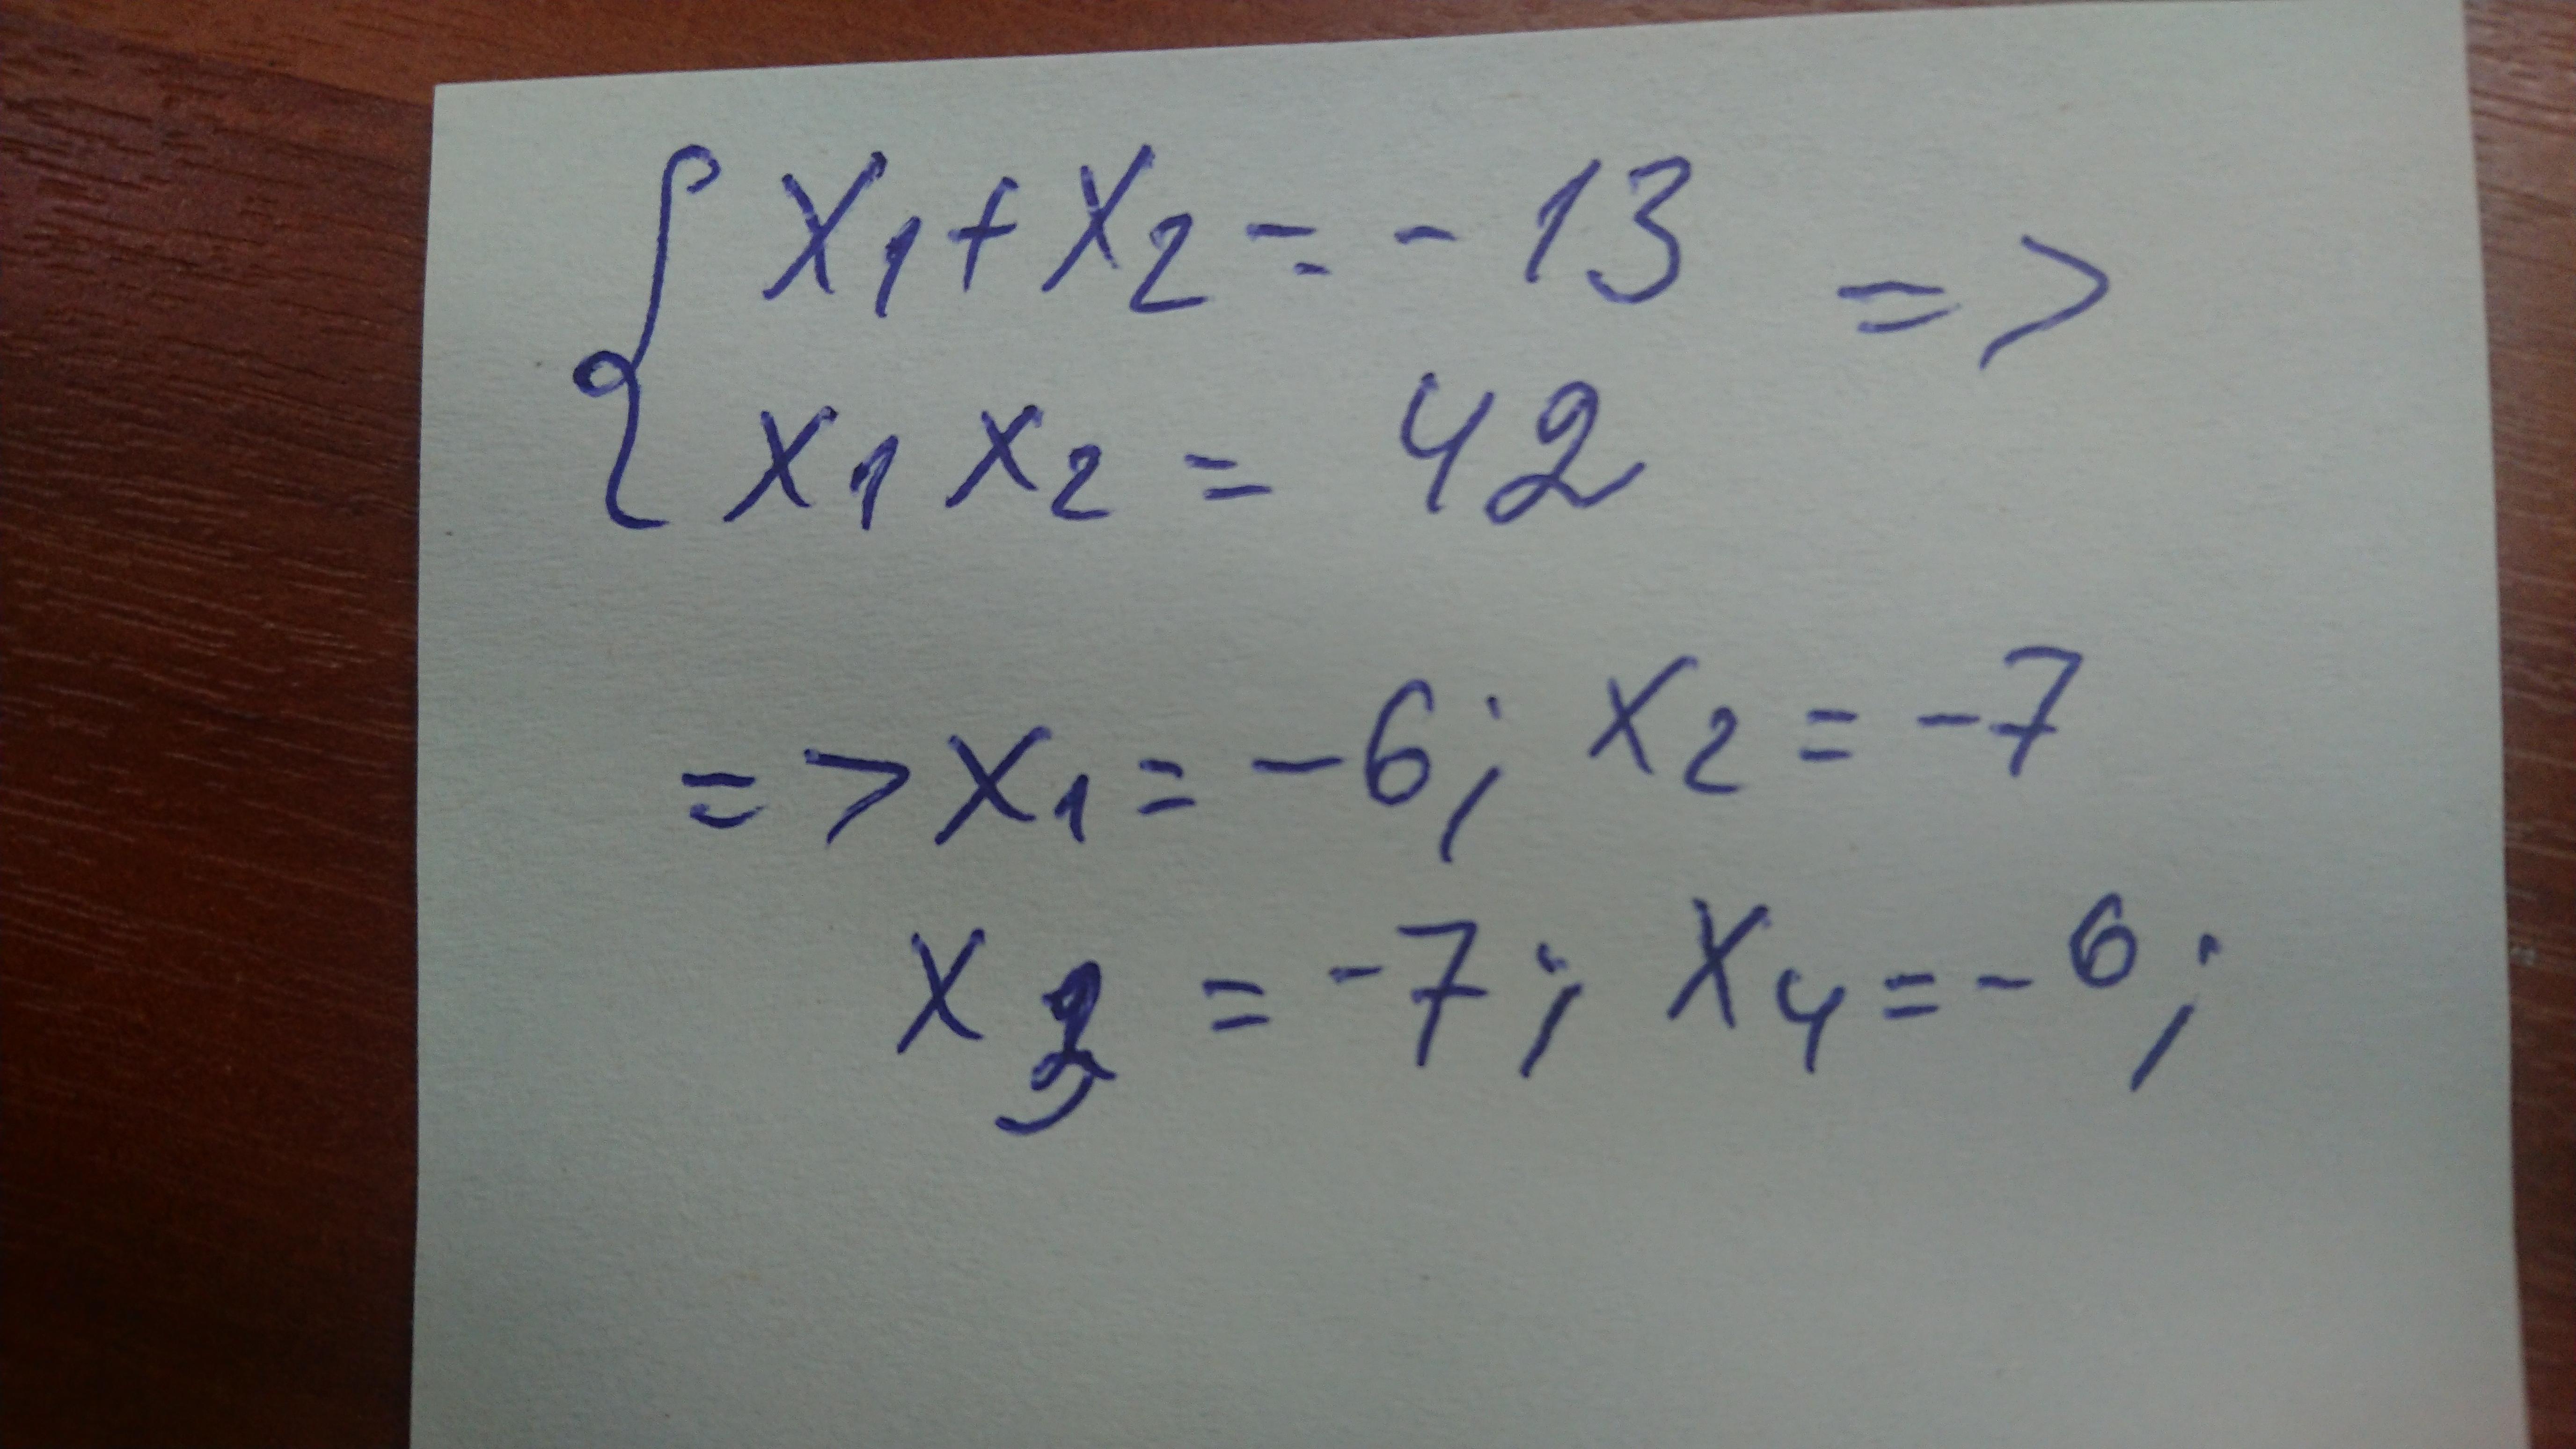 { x1 + x2 = - 13 =>
x1 x2 = 42
=> x1 = -6; x2 = -7
x3 = -7; x4 = -6;